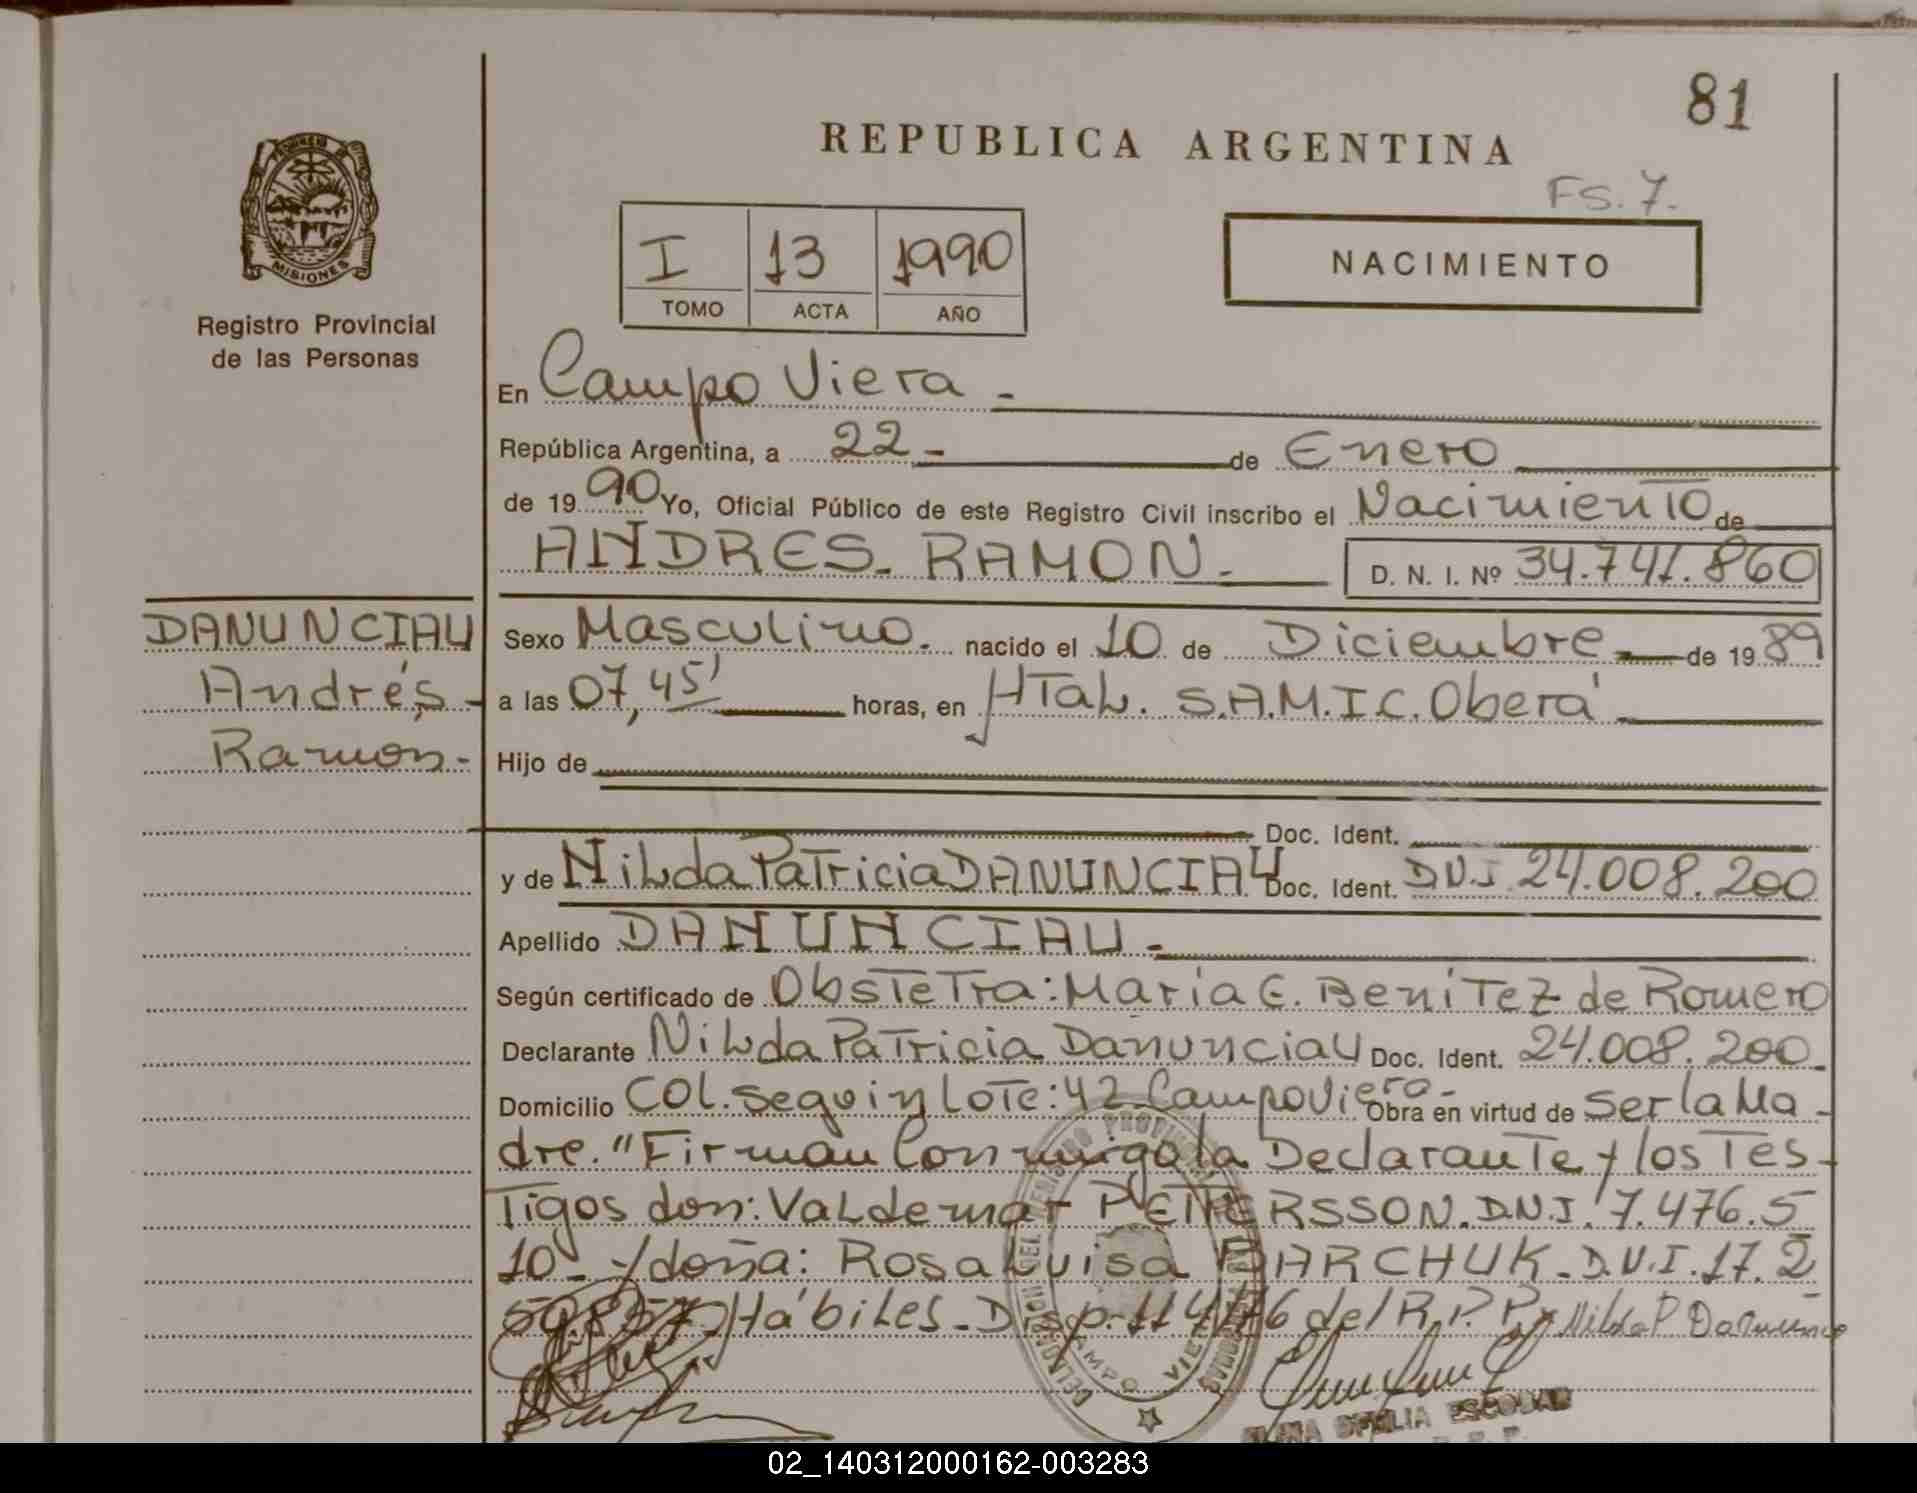 81
REPUBLICA ARGENTINA
FS. 7.
MISIONES
Registro Provincial
de las Personas
I 13 1990
TOMO ACTA AÑO
NACIMIENTO
En Campo Viera -
República Argentina, a 22 - de Enero
de 19 90 Yo, Oficial Público de este Registro Civil inscribo el Nacimiento de
ANDRES - RAMON - D. N. I. Nº 34.741.860
DANUNCIAU
Andrés -
Ramón -
Sexo Masculino. nacido el 10 de Diciembre de 19 89
a las 07,45' horas, en Htal. S.A.M.I.C. Oberá
Hijo de
Doc. Ident.
y de Nilda Patricia DANUNCIAU Doc. Ident. D.N.I. 24.008.200
Apellido DANUNCIAU -
Según certificado de Obstetra: María E. Benítez de Romero
Declarante Nilda Patricia Danunciau Doc. Ident. 24.008.200 -
Domicilio Col. Seguin Lote: 42 Campo Viera - Obra en virtud de ser la Ma -
dre. "Firman Conmigo la Declarante y los Tes -
tigos don: Valdemar PETTERSSON. D.N.I. 7.476.5
10 - y doña: Rosa Luisa MARCHUK - D.N.I. 17.2
Hábiles - Disp. 114/76 del R.P.P. Nilda P Danuncio
CAMPO VIERA
ESCOBAR
02_140312000162-003283